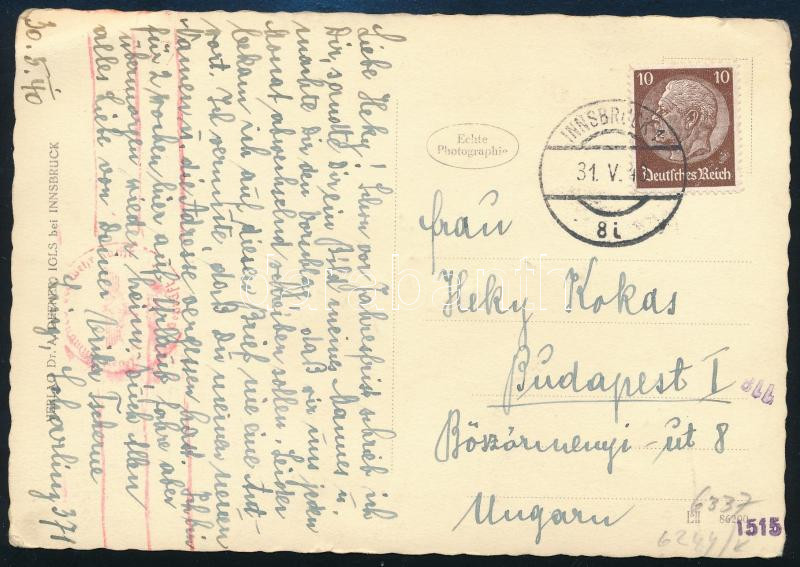 30. V. 40
Liebe Heky! Schon vor Jahresfrist schrieb ich
Dir, sandte Dir ein Bild meines Mannes u.
machte Dir den Vorschlag, daß wir uns jeden
Monat abwechselnd schreiben sollen. Leider
bekam ich auf diesen Brief nie eine Ant-
wort. Ich vermute, daß Du meinen neuen
Namen u. die Adresse vergessen hast. Ich bin
für 2 Wochen hier auf Urlaub, fahre aber
übermorgen wieder heim. Dich Allen
alles Liebe von Deiner Tscherne
Echte
Photographie
INNSBRUCK
31. V. 4
8 i
10 10
Deutsches Reich
Frau
Heky Kokas
Budapest I
Böszörmenyi-ut 8
Ungarn
VERLAG Dr. IGLS bei INNSBRUCK
6337
86200
1515